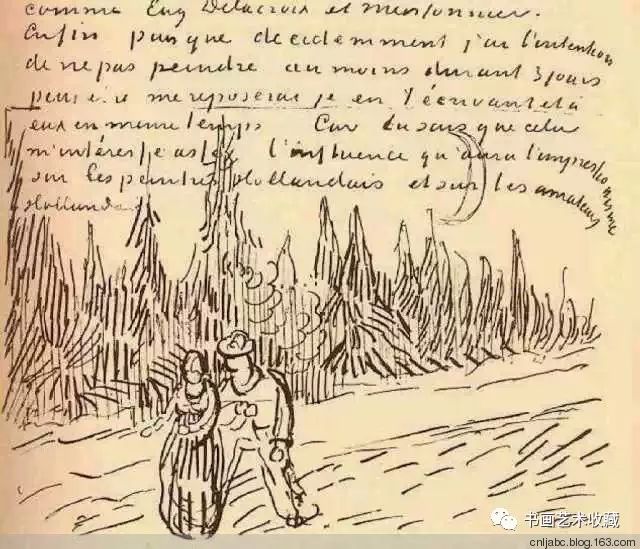 comme Eug Delacroix et Meissonnier.
Enfin puisque decidemment j'ai l'intention
de ne pas peindre au moins durant 3 jours
peut être me reposerai je en t'écrivant et à
eux en meme temps Car tu sais que cela
m'intéresse assez l'influence qu'aura l'impressionisme
sur les peintres Hollandais et sur les amateurs
Hollandais
书画艺术收藏
cnljabc.blog.163.com